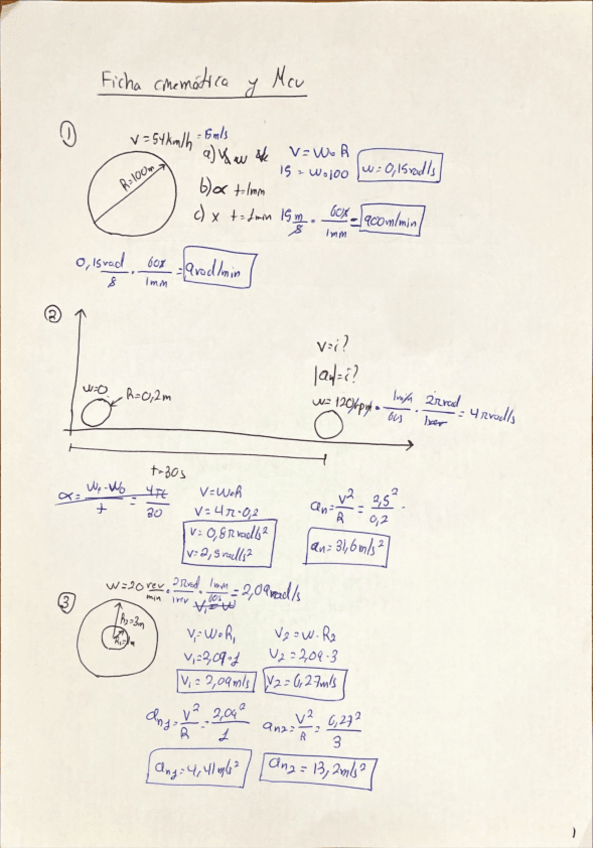 Ficha cinemática y Mcu
①
V=54km/h = 15m/s
R=100m
a) V y w
V = W·R
15 = W·100
W= 0,15rad/s
b) α t=1min
c) x t=1min 15 m/s · 60s/1min = 900m/min
0,15rad/s · 60s/1min = 9rad/min
②
V=¿?
|an|=¿?
w=0
R=0,2m
W= 120rpm · 1min/60s · 2πrad/1rev = 4πrad/s
t=30s
α= W1-W0/t = 4π/30
V=W·R
V= 4π·0,2
V= 0,8πrad/s²
V=2,5rad/s²
an= V²/R = 2,5²/0,2
an= 31,6m/s²
③
W=20 rev/min · 2πrad/1rev · 1min/60s = 2,09rad/s
R2=3m
R1=1m
V1=W·R1
V2=W·R2
V1=2,09·1
V2=2,09·3
V1= 2,09m/s
V2=6,27m/s
an1= V²/R = 2,09²/1
an2= V²/R = 6,27²/3
an1=4,41m/s²
an2= 13,2m/s²
1